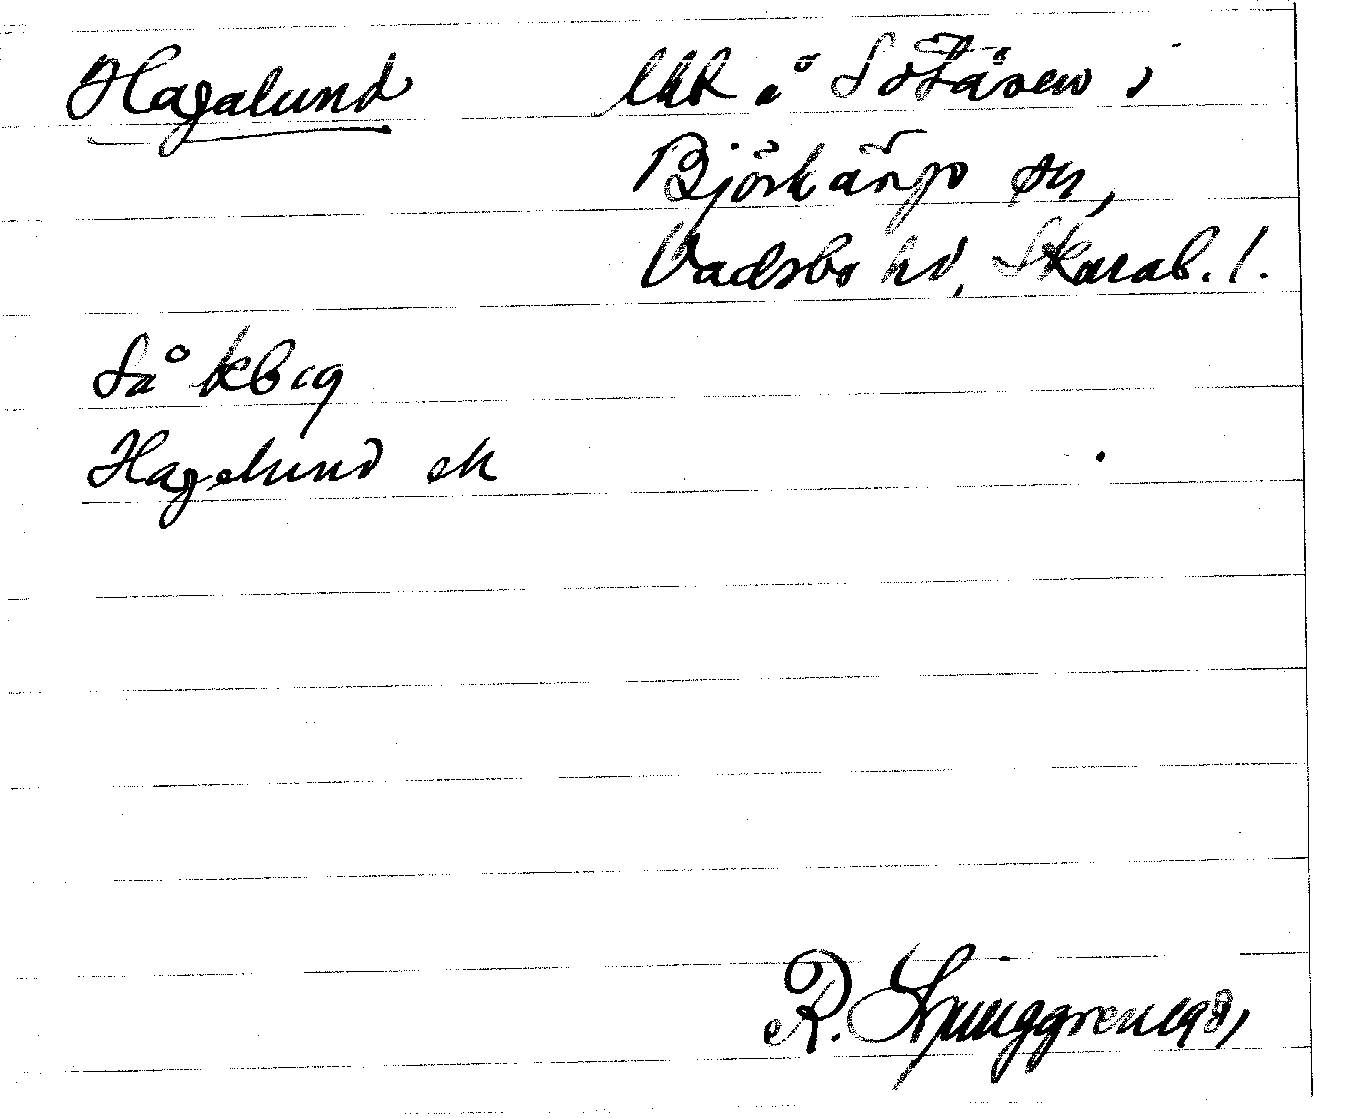 Hagalund lht å Sötåsen i
Björkängs sn,
Vadsbo hd, Skarab. l.
Så kbig
Hagelund ek
R. Ljunggren 1981